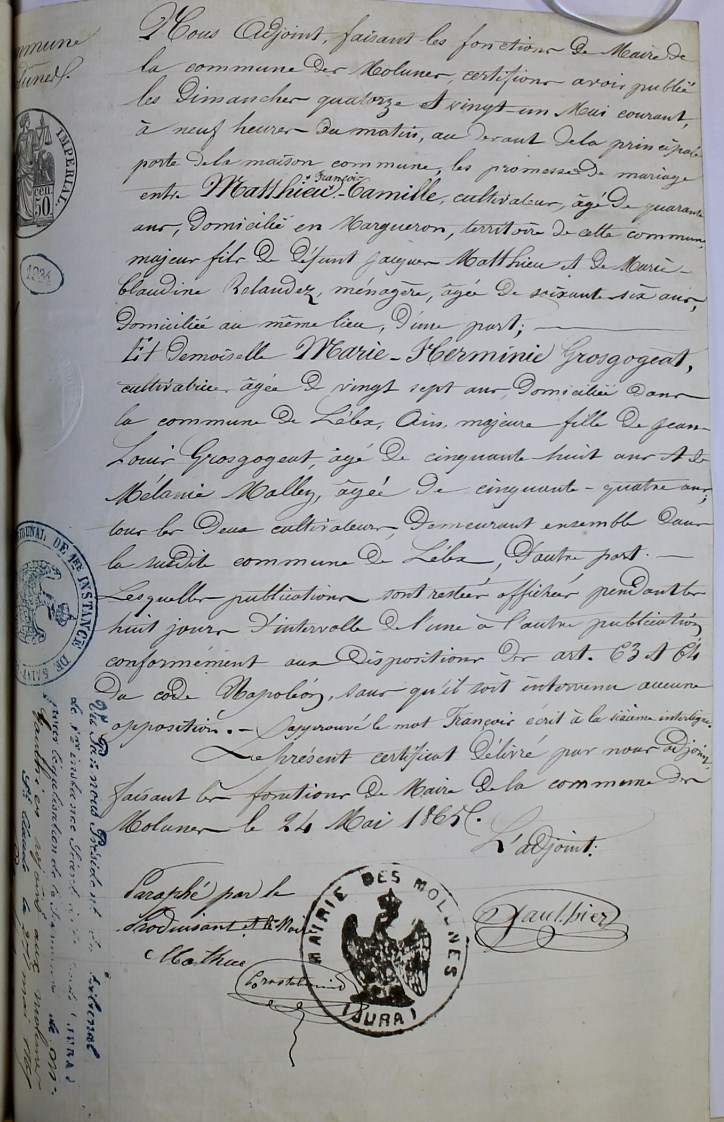 Nous Adjoint, faisant les fonctions de Maire de
la commune des Molunes, certifions avoir publié
les Dimanches quatorze et vingt-un Mai courant,
à neuf heures du matin, au devant de la principale
porte de la maison commune, les promesses de mariage
François
entre Matthieu-Camille, cultivateur, âgé de quarante
ans, domicilié en Margueron, territoire de cette commune,
majeur fils de défunt Jacques Matthieu et de Marie-
Claudine Relandez, ménagère, âgée de soixante six ans,
domiciliée au même lieu, d'une part;
Et demoiselle Marie-Herminie Grosgogeat,
cultivatrice, âgée de vingt sept ans, domiciliée dans
la commune de Lélex, Ain, majeure fille de Jean-
Louis Grosgogeat, âgé de cinquante-huit ans et de
Mélanie Malley, âgée de cinquante-quatre ans,
tous les deux cultivateurs, demeurant ensemble dans
la susdite commune de Lélex, d'autre part.
Lesquelles publications sont restées affichées pendant les
huit jours d'intervalle de l'une à l'autre publication,
conformément aux dispositions des art. 63 et 64
du code Napoléon, sans qu'il soit intervenu aucune
opposition. - J'approuve le mot François écrit à la sixième interligne.
Le présent certificat délivré par nous adjoint,
faisant les fonctions de Maire de la commune des
Molunes le 24 Mai 1865.
L'adjoint:
Paraphé par le
Produisant et le Maire
Mathieu
Gauthier
MAIRIE DES MOLUNES
(JURA)
IMPERIAL
50
cen
1294
TRIBUNAL DE 1ère INSTANCE DE SAINT
Vu Par nous Président du tribunal
de 1ère instance séant à St Claude (JURA)
pour légalisation de la signature de M.
Gauthier adjoint aux Molunes
St Claude le mai 1865